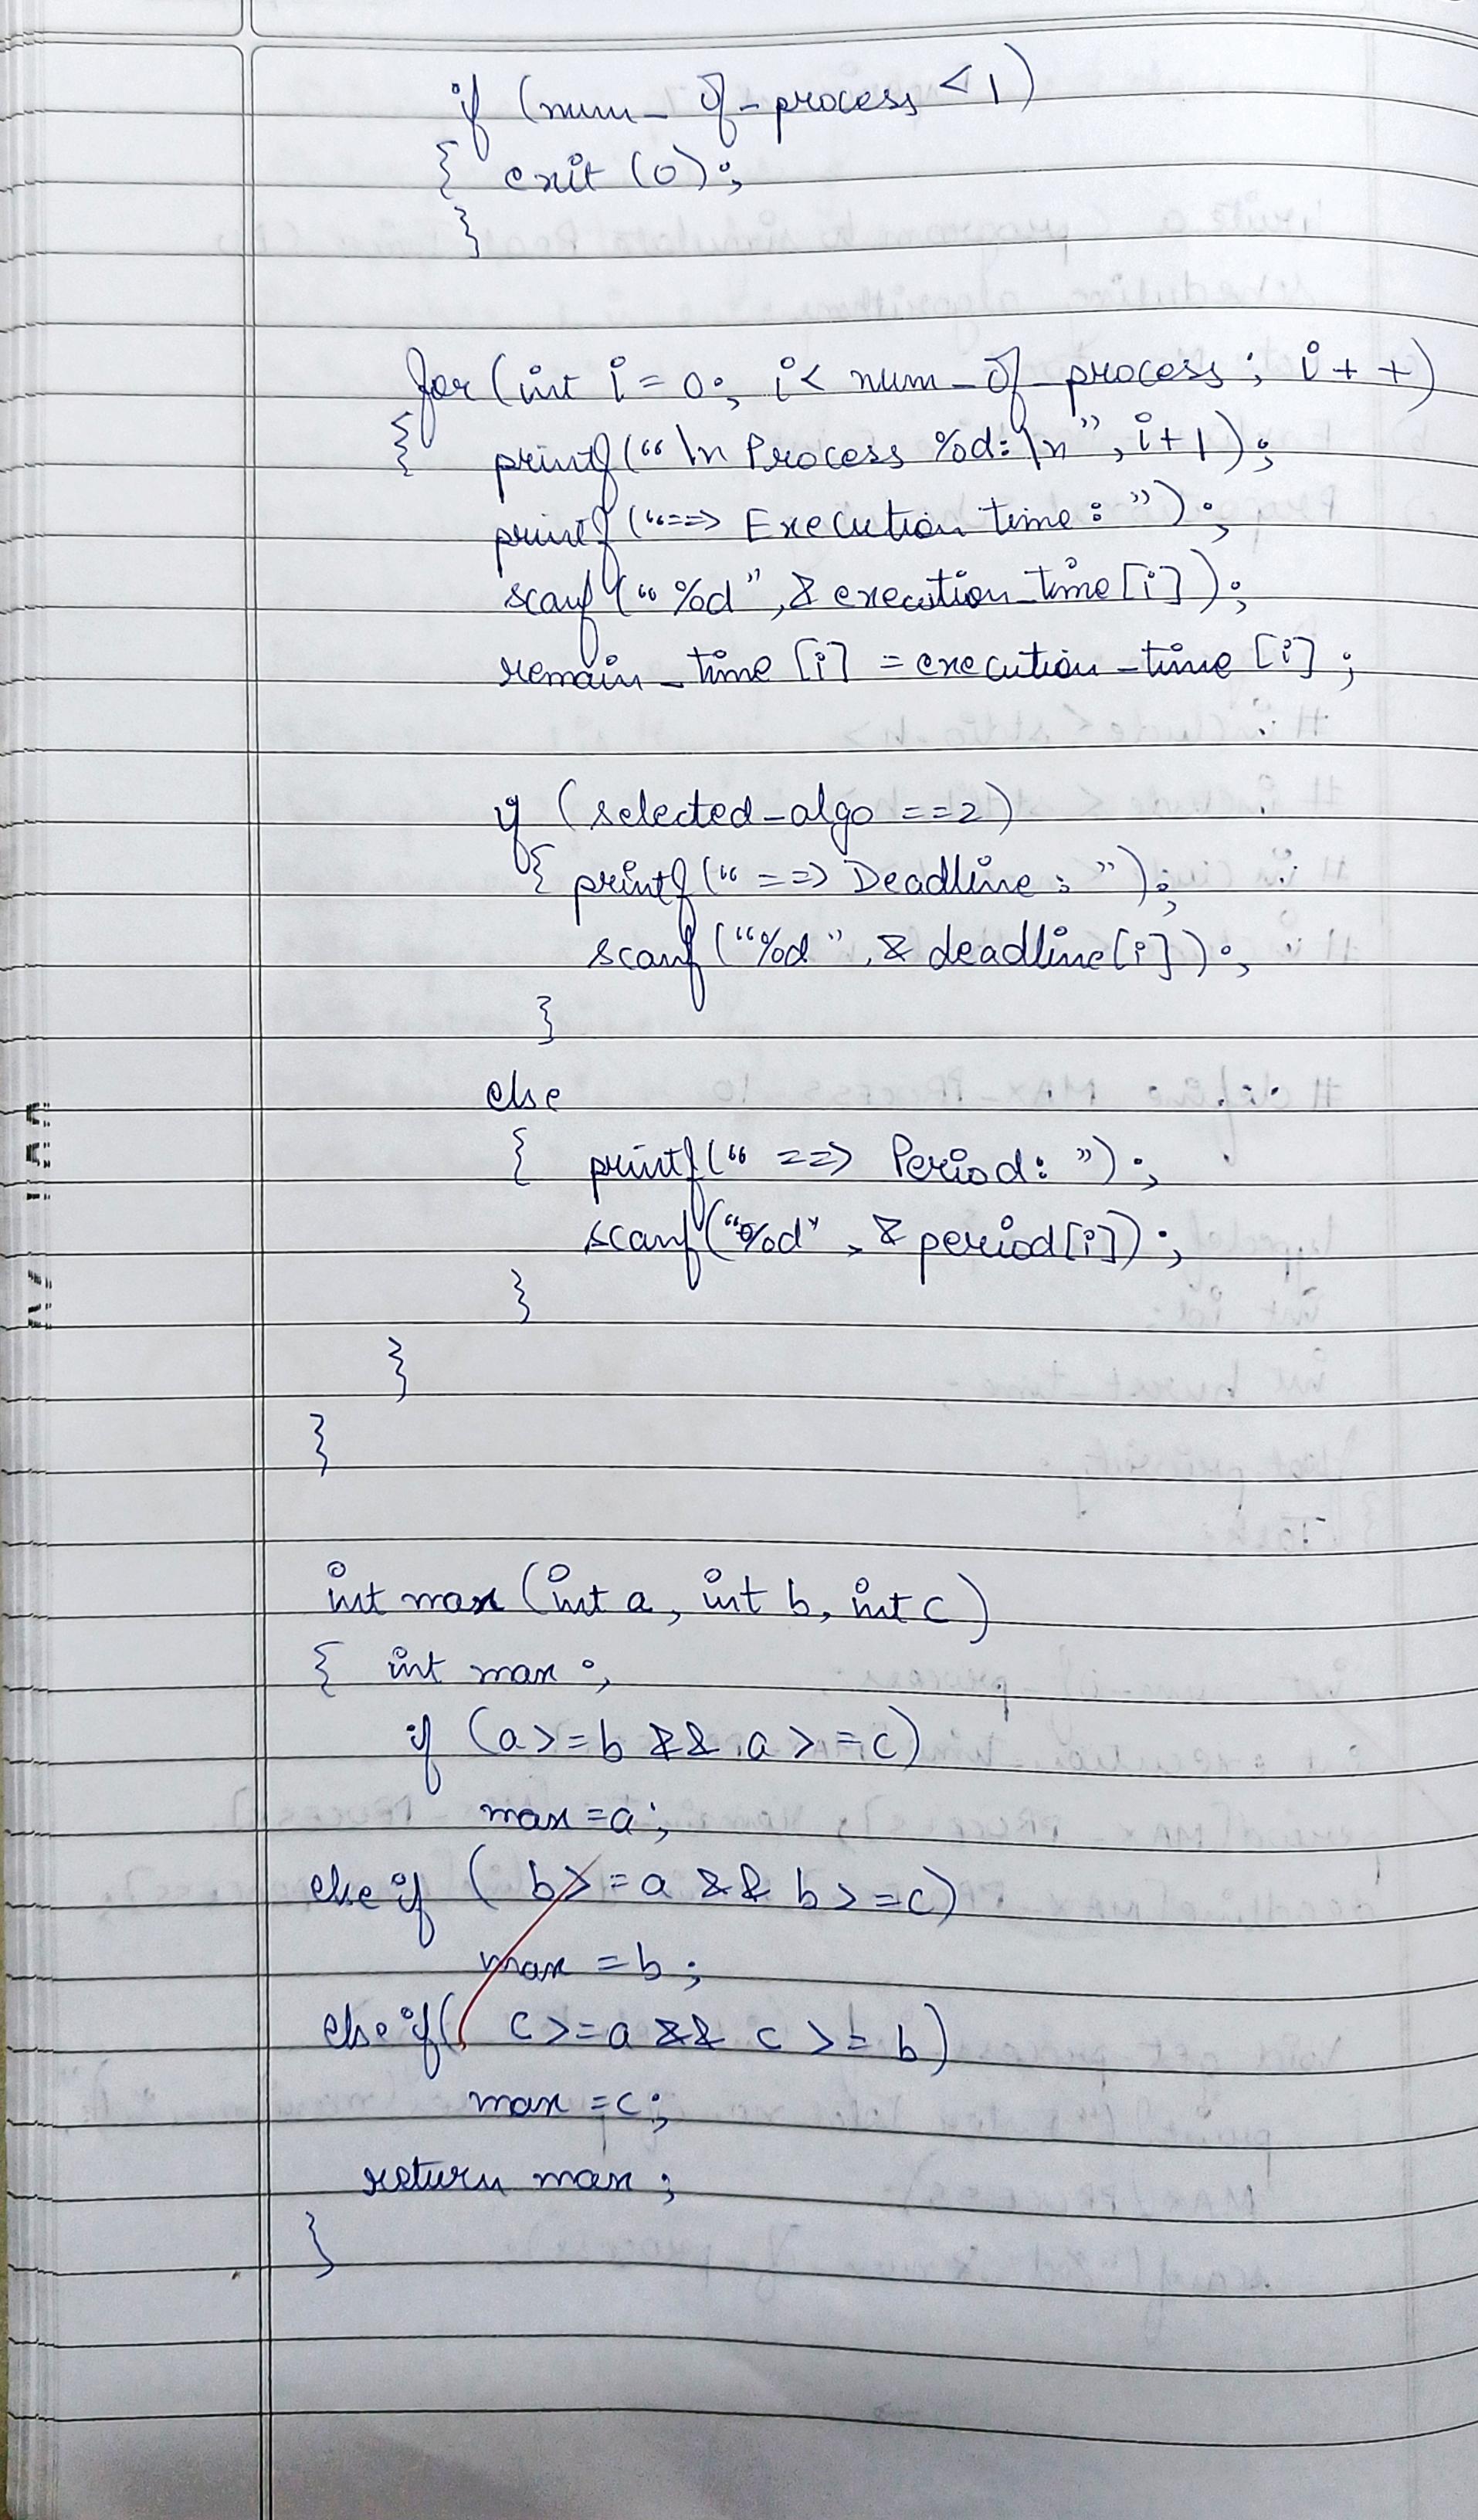 if (num_of_process < 1)
{ exit (0);
}
for (int i = 0; i < num_of_process ; i++)
{ printf("\n Process %d:\n", i+1);
printf("==> Execution time : ");
scanf("%d", & execution_time[i]);
remain_time [i] = execution_time [i] ;
if (selected_algo ==2)
{ printf(" ==> Deadline : ");
scanf("%d", & deadline[i]);
}
else
{ printf(" ==> Period: ");
scanf("%d", & period[i]);
}
}
}
int max (int a, int b, int c)
{ int max ;
if (a >= b && a >= c)
max = a;
else if ( b >= a && b >= c)
max = b;
else if( c >= a && c >= b)
max = c;
return max ;
}